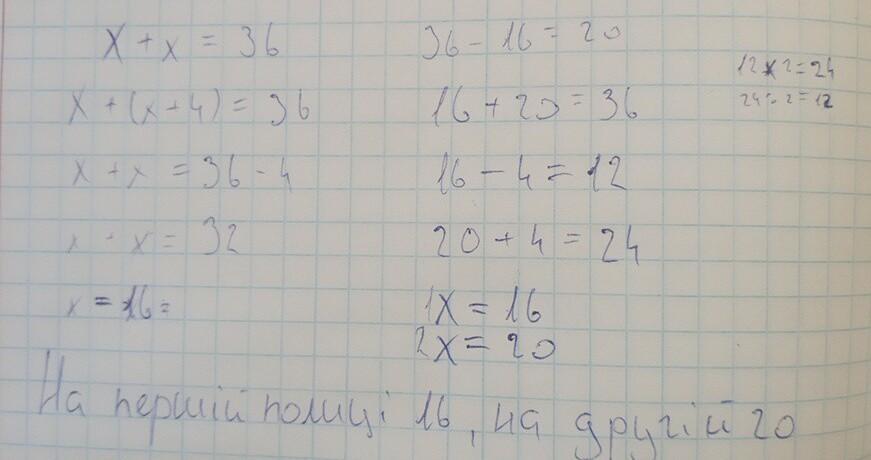 x + x = 36
x + (x + 4) = 36
x + x = 36 - 4
x + x = 32
x = 16 =
36 - 16 = 20
16 + 20 = 36
16 - 4 = 12
20 + 4 = 24
1x = 16
2x = 20
12 x 2 = 24
24 : 2 = 12
На першій полиці 16, на другій 20